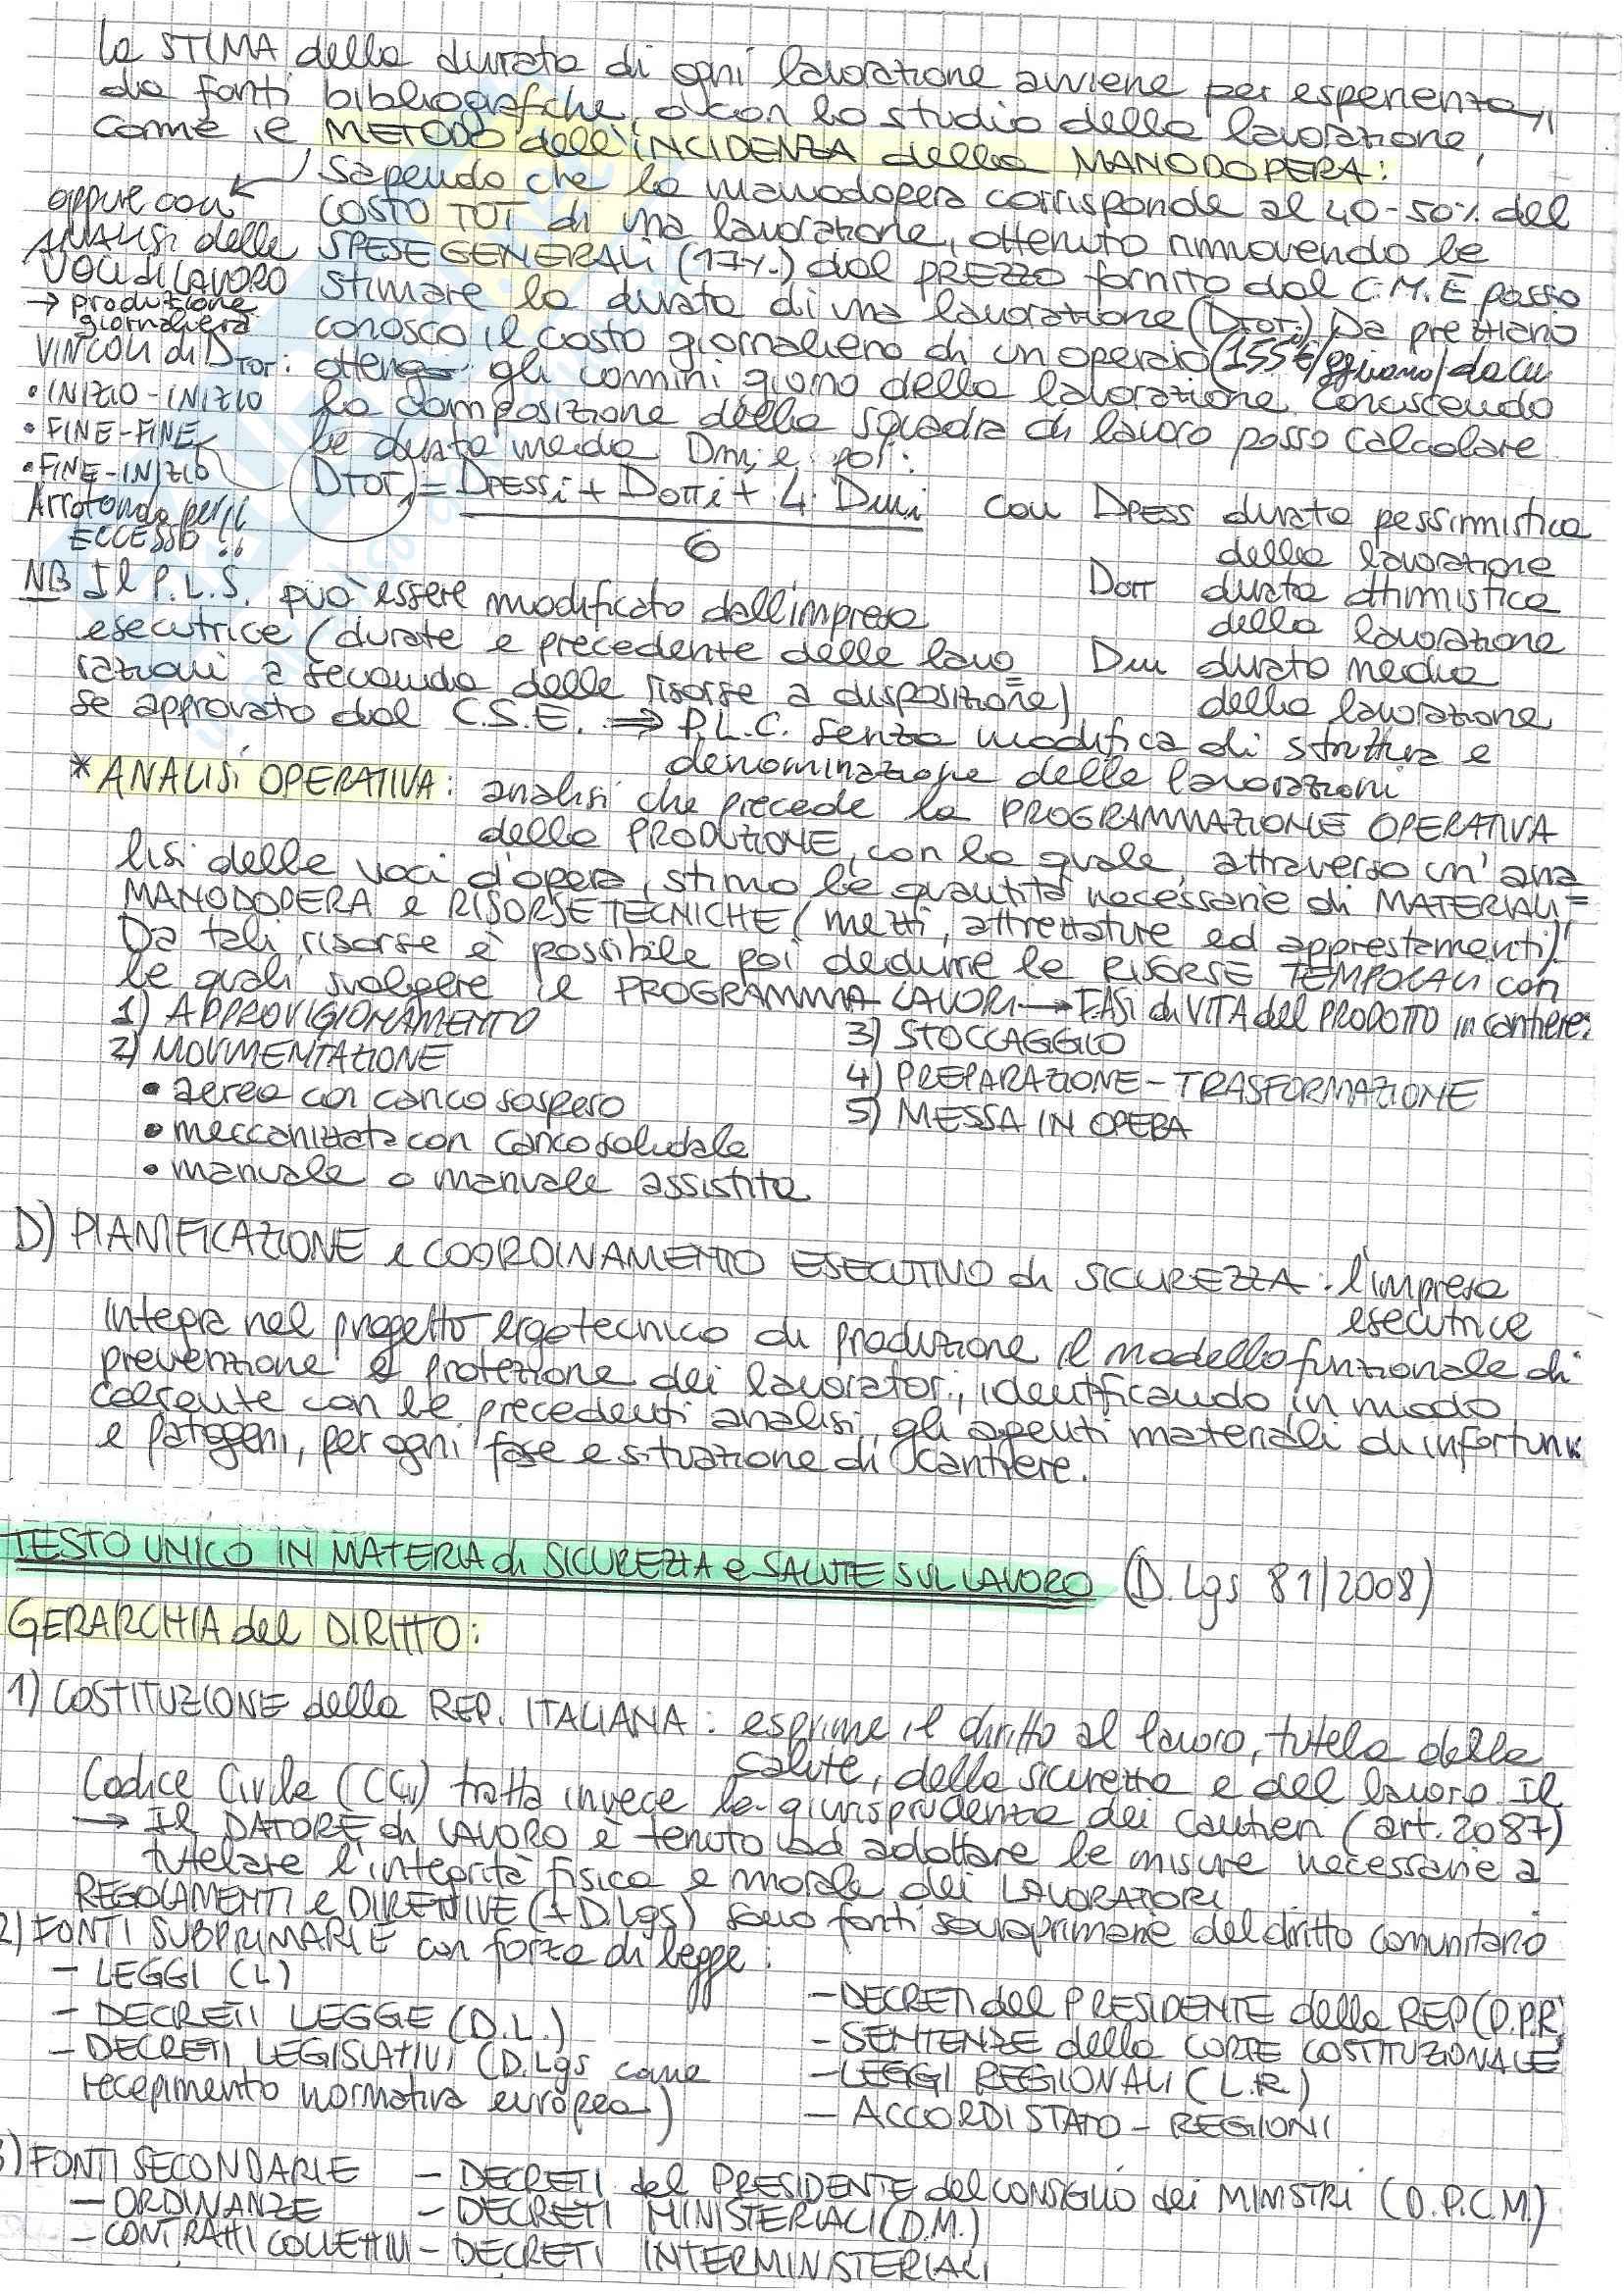 la STIMA della durata di ogni lavorazione avviene per esperienza,
da fonti bibliografiche, o con lo studio della lavorazione,
come il METODO dell'INCIDENZA della MANODOPERA:
sapendo che la manodopera corrisponde al 40-50% del
COSTO TOT di una lavorazione, ottenuto rimuovendo le
SPESE GENERALI (17%) dal PREZZO fornito dal C.M.E posso
stimare la durata di una lavorazione (DTOT). Da preziario
conosco il costo giornaliero di un operaio (155€/ggiuomo) da cui
ottengo gli uomini giorno della lavorazione. Conoscendo
la composizione della squadra di lavoro posso calcolare
le durata media Dmi e poi:
oppure con
ANALISI delle
VOCI di LAVORO
→ produzione
giornaliera
VINCOLI di DTOT:
• INIZIO-INIZIO
• FINE-FINE
• FINE-INIZIO
Arrotondo per
ECCESSO !!
DTOTi = DPESSi + DOTTi + 4 Dmi
6
con DPESS durata pessimistica
della lavorazione
DOTT durata ottimistica
della lavorazione
Dm durata media
della lavorazione
NB Il P.L.S. può essere modificato dall'impresa
esecutrice (durate e precedente delle lavo=
razioni a seconda delle risorse a disposizione)
se approvato dal C.S.E. ⇒ P.L.C. senza modifica di struttura e
denominazione delle lavorazioni
* ANALISI OPERATIVA: analisi che precede la PROGRAMMAZIONE OPERATIVA
della PRODUZIONE, con la quale, attraverso un'ana=
lisi delle voci d'opera, stimo le quantità necessarie di MATERIALI,
MANODOPERA e RISORSE TECNICHE (mezzi, attrezzature ed apprestamenti).
Da tali risorse è possibile poi dedurre le RISORSE TEMPORALI con
le quali svolgere il PROGRAMMA LAVORI → FASI di VITA del PRODOTTO in cantiere:
1) APPROVIGIONAMENTO
2) MOVIMENTAZIONE
• aerea con carico sospeso
• meccanizzata con carico solidale
• manuale o manuale assistita
3) STOCCAGGIO
4) PREPARAZIONE-TRASFORMAZIONE
5) MESSA IN OPERA
D) PIANIFICAZIONE e COORDINAMENTO ESECUTIVO di SICUREZZA: l'impresa
esecutrice
integra nel progetto ergotecnico di produzione il modello funzionale di
prevenzione e protezione dei lavoratori, identificando in modo
coerente con le precedenti analisi, gli agenti materiali di infortuni
e patogeni, per ogni fase e situazione di cantiere.
TESTO UNICO IN MATERIA di SICUREZZA e SALUTE SUL LAVORO (D.Lgs 81/2008)
GERARCHIA del DIRITTO:
1) COSTITUZIONE della REP. ITALIANA: esprime il diritto al lavoro, tutela della
salute, della sicurezza e del lavoro. Il
Codice Civile (CCiv) tratta invece la giurisprudenza dei cantieri (art. 2087)
→ Il DATORE di LAVORO è tenuto ad adottare le misure necessarie a
tutelare l'integrità fisica e morale dei LAVORATORI
REGOLAMENTI e DIRETTIVE (+ D.Lgs) sono fonti sovraprimarie del diritto comunitario
2) FONTI SUBPRIMARIE con forza di legge:
- LEGGI (L)
- DECRETI LEGGE (D.L.)
- DECRETI LEGISLATIVI (D.Lgs come
recepimento normativa europea)
- DECRETI del PRESIDENTE della REP (D.P.R)
- SENTENZE della CORTE COSTITUZIONALE
- LEGGI REGIONALI (L.R.)
- ACCORDI STATO - REGIONI
3) FONTI SECONDARIE
- ORDINANZE
- CONTRATTI COLLETTIVI
- DECRETI del PRESIDENTE del CONSIGLIO dei MINISTRI (D.P.C.M.)
- DECRETI MINISTERIALI (D.M.)
- DECRETI INTERMINISTERIALI